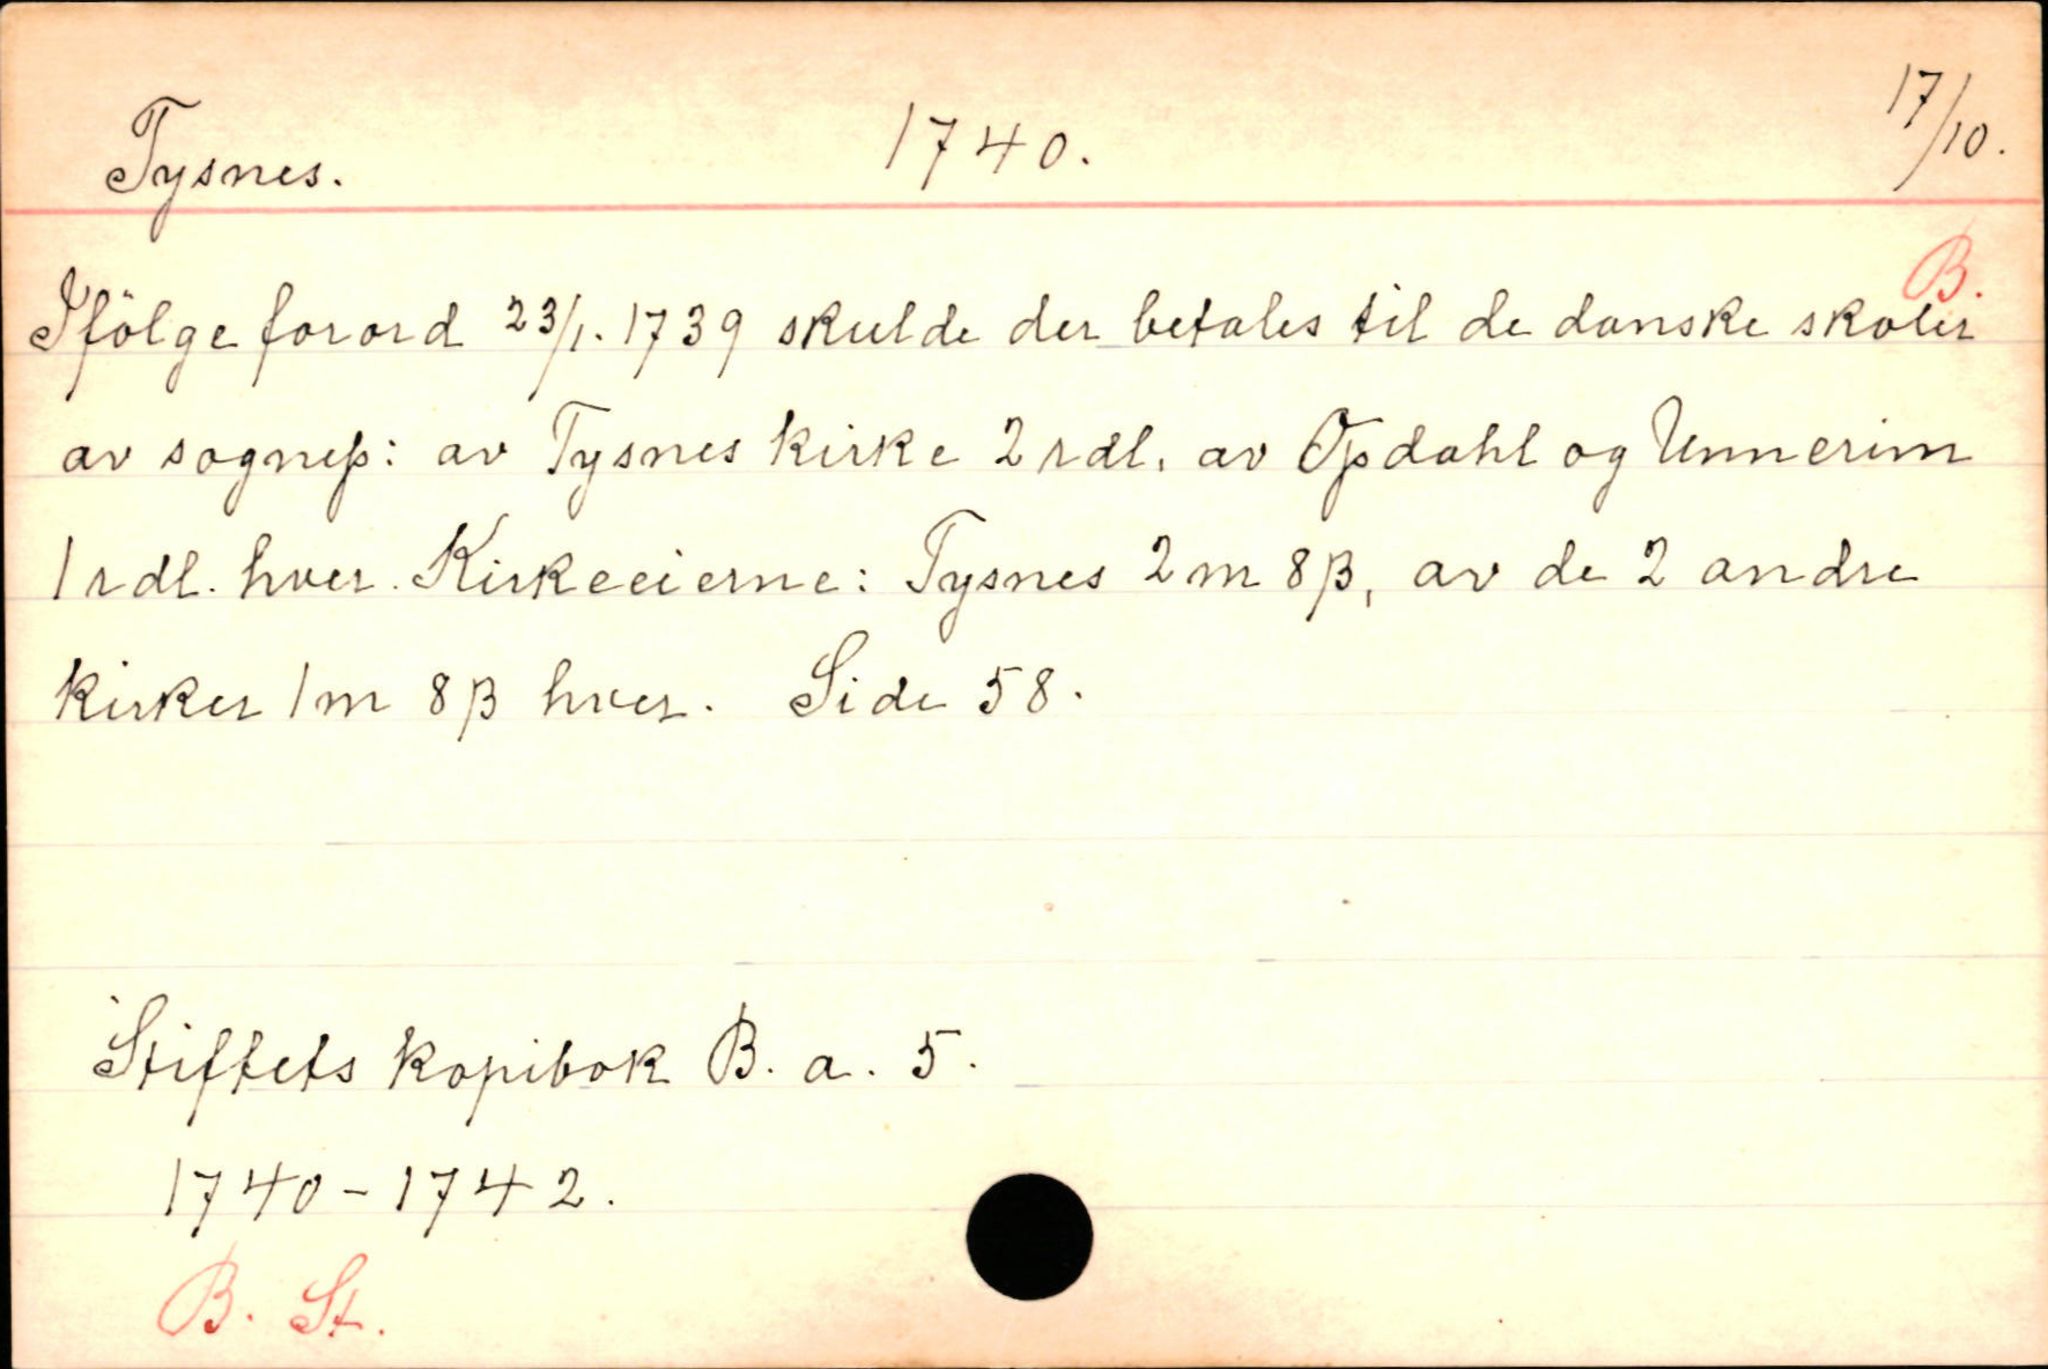 Tysnes. 1740. 17/10.
B.
Ifölge forord 23/1. 1739 skulde der betales til de danske skoler
av sognepß: av Tysnes kirke 2 rdl. av Opdahl og Unnerim
1 rdl. hver. Kirkeeierne: Tysnes 2 m 8 β, av de 2 andre
kirker 1 m 8 β hver. Side 58.
Stiftets kopibok B. a. 5.
1740-1742.
B. St.